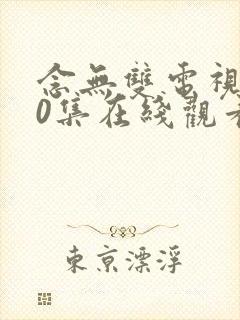 念無雙電視
0集在綫觀看
東京漂浮